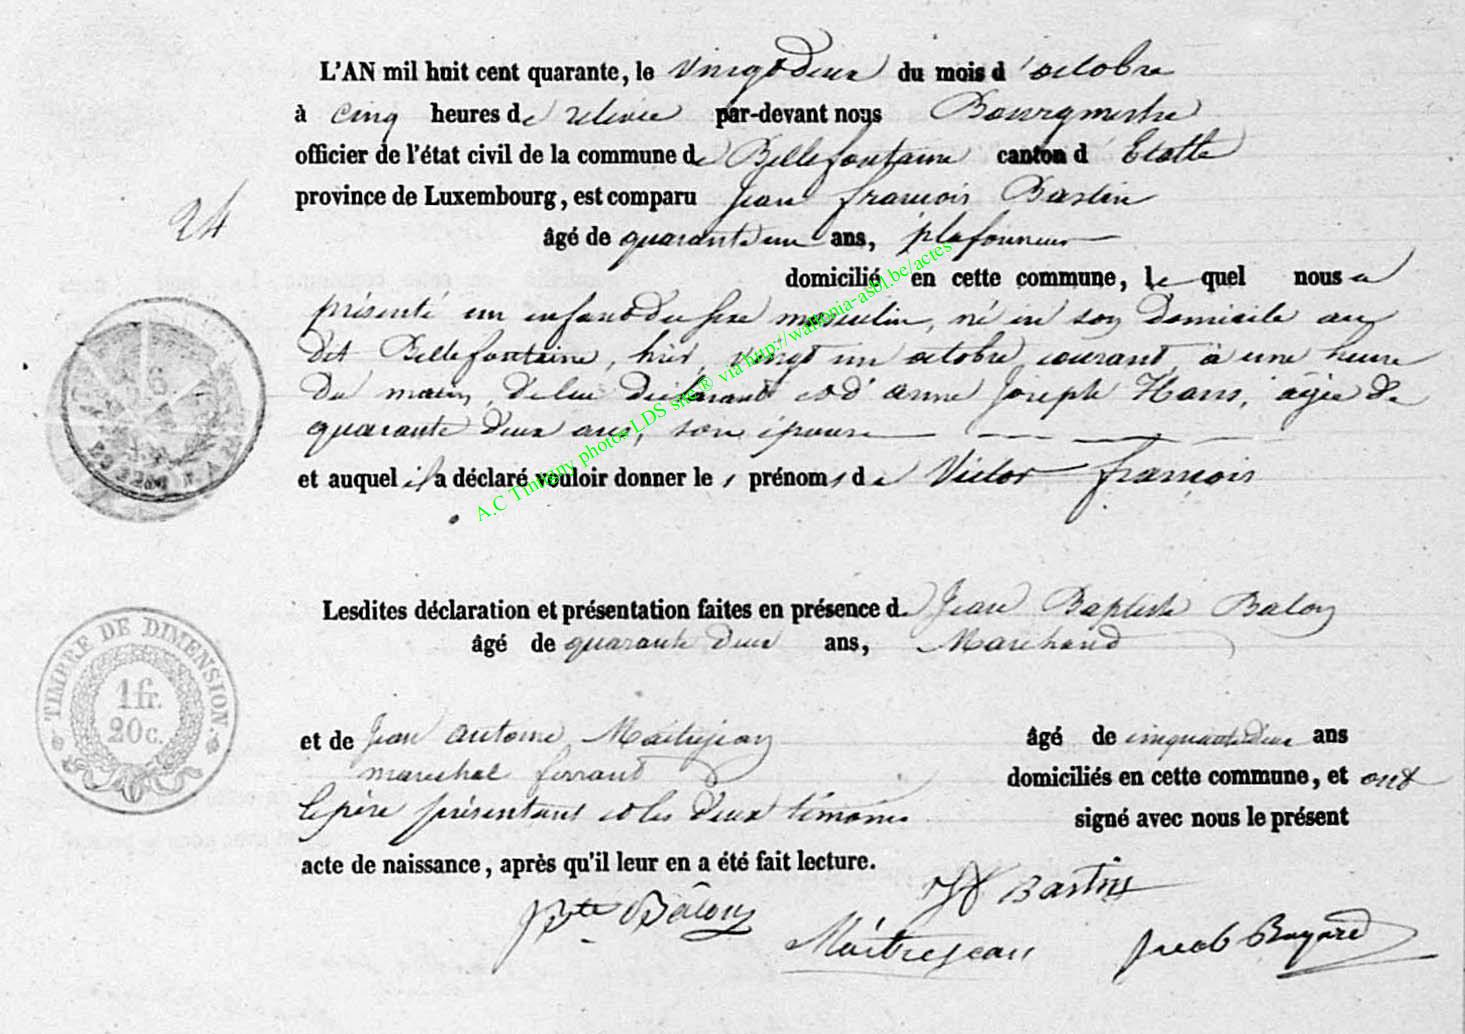 L'AN mil huit cent quarante, le vingt deux du mois d'octobre
à cinq heures de relevée par-devant nous Bourgmestre
officier de l'état civil de la commune de Bellefontaine canton d'Etalle
province de Luxembourg, est comparu Jean françois Bastin
24
âgé de quarante un ans, plafonneur
domicilié en cette commune, le quel nous a
présenté un enfant du sexe masculin, né en son domicile au
dit Bellefontaine, hier, vingt un octobre courant à une heure
du matin, de lui déclarant et d'anne Joseph Hans, agée de
quarante deux ans, son épouse
et auquel il a déclaré vouloir donner les prénoms de Victor françois
A.C Tintigny photos LDS site® via http://wallonia-asbl.be/actes
Lesdites déclaration et présentation faites en présence de Jean Baptiste Balon
âgé de quarante deux ans, Marchand
TIMBRE DE DIMENSION
1 fr.
20 c.
et de Jean antoine Maitrejean âgé de cinquante deux ans
marechal ferrand domiciliés en cette commune, et ont
le père présentant et les deux témoins signé avec nous le présent
acte de naissance, après qu'il leur en a été fait lecture.
Bastin
Bte Bâlon
Maitrejean Jacob Bayard